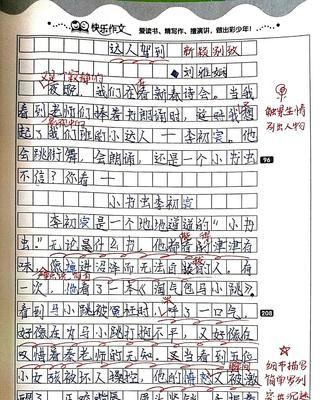 快乐作文 爱读书、精写作、擅演讲，做出彩少年！
达人驾到 新颖别致
刘雅娴
这个寂静的
夜晚，我们在看新春诗会。当我
看到老师们捧着书朗诵时，这时我想
起了我们班的小达人——李初宸。他
会跳街舞，会朗诵，还是一个小书虫
不信？你看——
96
触景生情
引出人物
小书虫李初宸
李初宸是一个地地道道的“小书
虫。”无论是什么书，他都看的津津有
味，像掉进沼泽而无法自拔的人，有
一次，他看了一本《淘气包马小跳》
208
看到马小跳被冤枉时，呼了一口气，
好像在为马小跳打抱不平，又好像在
叹惜着秦老师的无知。又当看到五位
小女孩被坏人操控，他的愤怒又被激
瞬间
细节描写
简单罗列